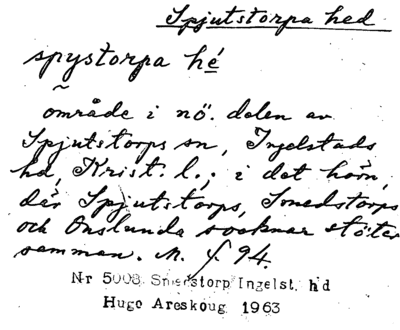 Spjutstorpa hed
spystorpa hé
område i nö. delen av
Spjutstorps sn, Ingelstads
hd, Krist. l.; i det hörn,
där Spjutstorps, Smedstorps
och Onslunda socknar stöter
samman. M. f 94.
Nr 5008 Smedstorp Ingelst. hd
Hugo Areskoug 1963